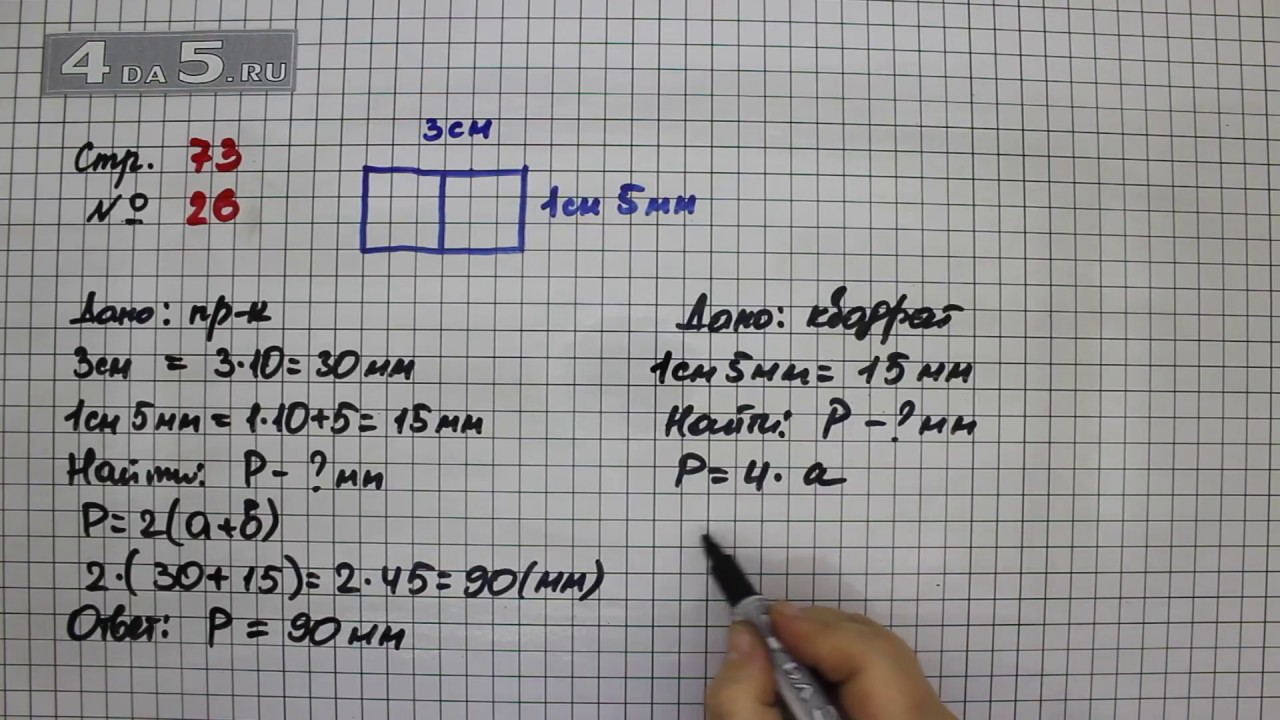 4DA5.RU
Стр. 73
№ 26
3см
1см 5мм
Дано: пр-к
3см = 3·10=30мм
1см5мм=1·10+5=15мм
Найти: P-?мм
P=2(a+b)
2·(30+15)=2·45=90(мм)
Ответ: P=90мм
Дано: квадрат
1см5мм=15мм
Найти: P-?мм
P=4·a